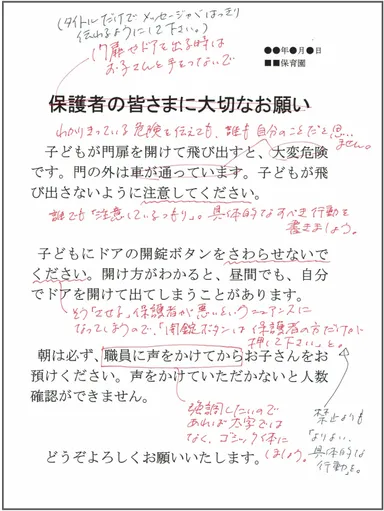 (タイトルだけでメッセージがはっきり
伝わるようにして下さい。)
門扉やドアを出る時は
お子さんと手をつないで
●●年●月●日
■■保育園
保護者の皆さまに大切なお願い
わかりきっている危険を伝えても、誰も自分のことだと思…
ません。
子どもが門扉を開けて飛び出すと、大変危険
です。門の外は車が通っています。子どもが飛
び出さないように注意してください。
誰でも「注意しているつもり」。具体的なすべき行動を
書きましょう。
子どもにドアの開錠ボタンをさわらせないで
ください。開け方がわかると、昼間でも、自分
でドアを開けて出てしまうことがあります。
「させる」保護者が悪いというニュアンスに
なってしまうので、「開錠ボタンは保護者の方だけが
押して下さい」と。
朝は必ず、職員に声をかけてからお子さんをお
預けください。声をかけていただかないと人数
確認ができません。
強調したいので
あれば太字では
なく、ゴシック体に
しましょう。
禁止よりも
「よりよい、
具体的な
行動」を。
どうぞよろしくお願いいたします。